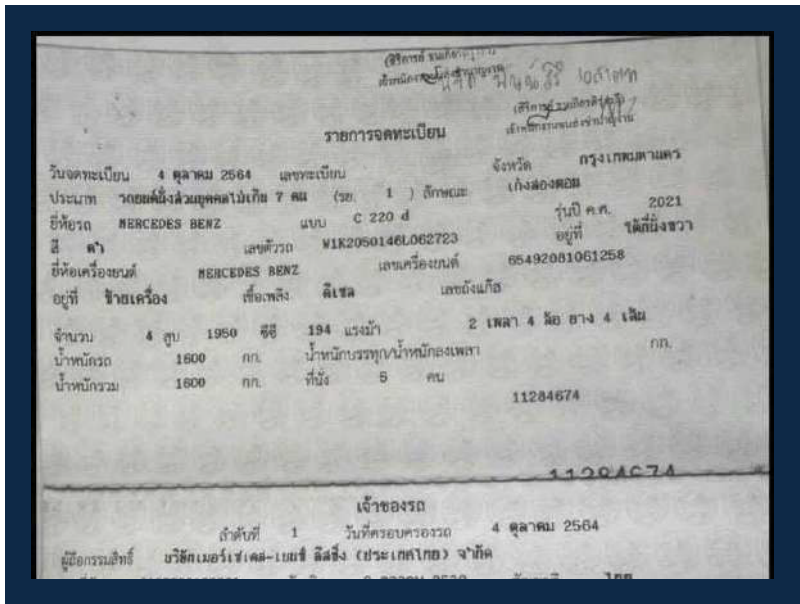 รายการจดทะเบียน
วันจดทะเบียน 4 ตุลาคม 2564 เลขทะเบียน จังหวัด กรุงเทพมหานคร
ประเภท รถยนต์นั่งส่วนบุคคลไม่เกิน 7 คน (รย. 1 ) ลักษณะ เก๋งสองตอน
ยี่ห้อรถ MERCEDES BENZ แบบ C 220 d รุ่นปี ค.ศ. 2021
สี ดำ เลขตัวรถ W1K2050146L062723 อยู่ที่ ใต้ที่นั่งขวา
ยี่ห้อเครื่องยนต์ MERCEDES BENZ เลขเครื่องยนต์ 65492081061258
อยู่ที่ ซ้ายเครื่อง เชื้อเพลิง ดีเซล เลขถังแก๊ส
จำนวน 4 สูบ 1950 ซีซี 194 แรงม้า 2 เพลา 4 ล้อ ยาง 4 เส้น
น้ำหนักรถ 1600 กก. น้ำหนักบรรทุก/น้ำหนักลงเพลา กก.
น้ำหนักรวม 1600 กก. ที่นั่ง 5 คน
11284674
11284674
เจ้าของรถ
ลำดับที่ 1 วันที่ครอบครองรถ 4 ตุลาคม 2564
ผู้ถือกรรมสิทธิ์ บริษัทเมอร์เซเดส-เบนซ์ ลีสซิ่ง (ประเทศไทย) จำกัด